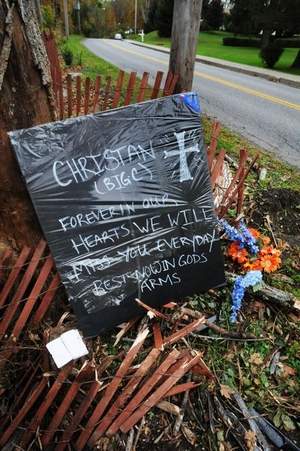 CHRISTIAN
(BIG C)
FOREVER IN OUR
HEARTS. WE WILL
MISS YOU EVERYDAY
REST NOW IN GODS
ARMS